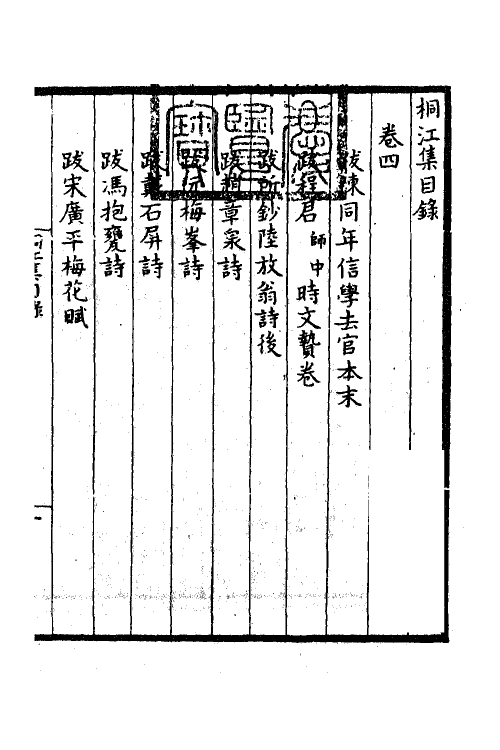 桐江集目錄
卷四
跋陳同年信學去官本末
跋程君師中時文贄卷
跋所鈔陸放翁詩後
跋趙章泉詩
跋阮梅峯詩
跋戴石屏詩
跋馮抱甕詩
跋宋廣平梅花賦